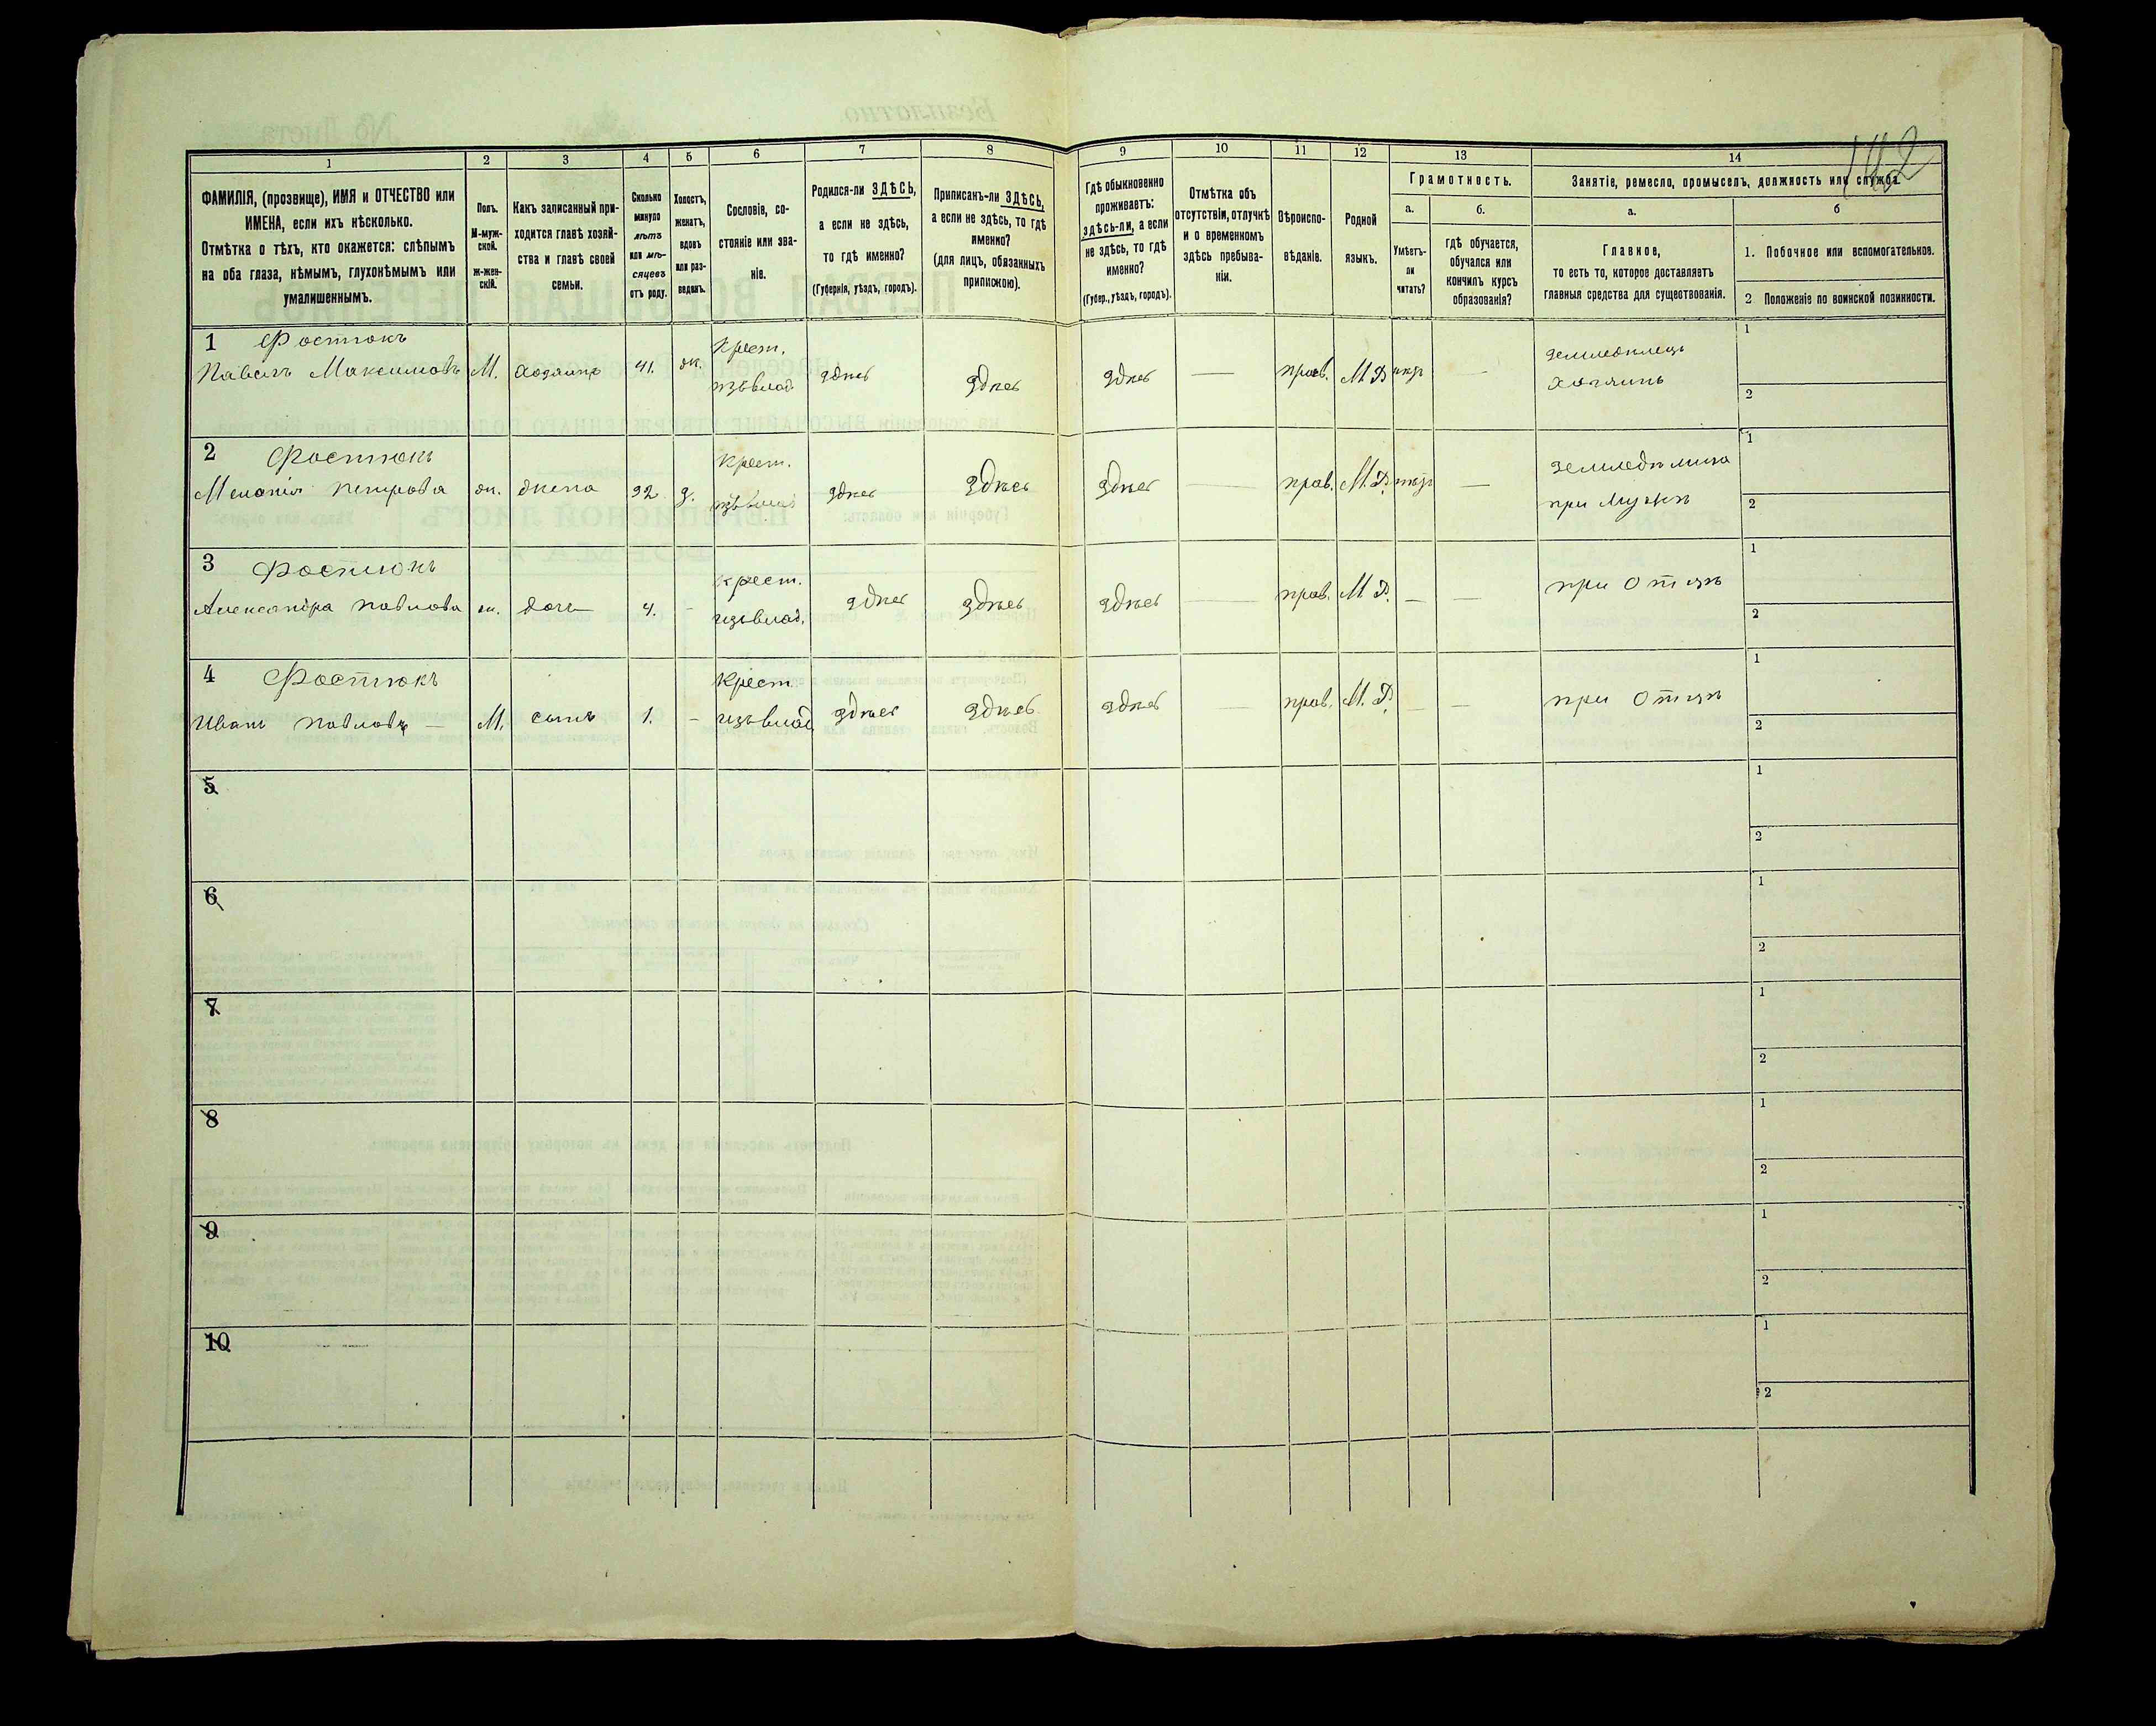 142
1 2 3 4 5 6 7 8 9 10 11 12 13 14
ФАМИЛІЯ, (прозвище), ИМЯ и ОТЧЕСТВО или
ИМЕНА, если ихъ нѣсколько.
Отмѣтка о тѣхъ, кто окажется: слѣпымъ
на оба глаза, нѣмымъ, глухонѣмымъ или
умалишеннымъ.
Полъ.
М-муж-
ской.
ж-жен-
скій.
Какъ записанный при-
ходится главѣ хозяй-
ства и главѣ своей
семьи.
Сколько
минуло
лѣтъ
или мѣ-
сяцевъ
отъ роду.
Холостъ,
женатъ,
вдовъ
или раз-
веденъ.
Сословіе, со-
стояніе или зва-
ніе.
Родился-ли ЗДѢСЬ,
а если не здѣсь,
то гдѣ именно?
(Губернія, уѣздъ, городъ).
Приписанъ-ли ЗДѢСЬ,
а если не здѣсь, то гдѣ
именно?
(для лицъ, обязанныхъ
припискою).
Гдѣ обыкновенно
проживаетъ:
здѣсь-ли, а если
не здѣсь, то гдѣ
именно?
(Губер., уѣздъ, городъ).
Отмѣтка объ
отсутствіи, отлучкѣ
и о временномъ
здѣсь пребыва-
ніи.
Вѣроиспо-
вѣданіе.
Родной
языкъ.
Грамотность.
а.
Умѣетъ-
ли
читать?
б.
гдѣ обучается,
обучался или
кончилъ курсъ
образованія?
Занятіе, ремесло, промыселъ, должность или служба.
а.
Главное,
то есть то, которое доставляетъ
главныя средства для существованія.
б
1. Побочное или вспомогательное.
2 Положеніе по воинской повинности.
1 Фостюкъ Крест. Земледѣлецъ 1
Павелъ Максимовъ М. хозяинъ 41. ж. изъ влад. здѣсь здѣсь здѣсь — прав. М Р — хозяинъ
2
2 Фостюкъ Крест. земледѣлица 1
Меланія Петрова ж. жена 32 з. изъ влад. здѣсь здѣсь здѣсь — прав. М.Р. — при Мужѣ 2
3 Фостюкъ крест. 1
Александра Павлова ж. дочь 4. – изъ влад. здѣсь здѣсь здѣсь — прав. М Р. — — при Отцѣ
2
4 Фостюкъ Крест. 1
Иванъ Павловъ — М. сынъ 1. – изъ влад. здѣсь здѣсь здѣсь — прав. М. Р. — — при Отцѣ
2
5 1
2
6 1
2
7 1
2
8 1
2
9 1
2
10 1
2